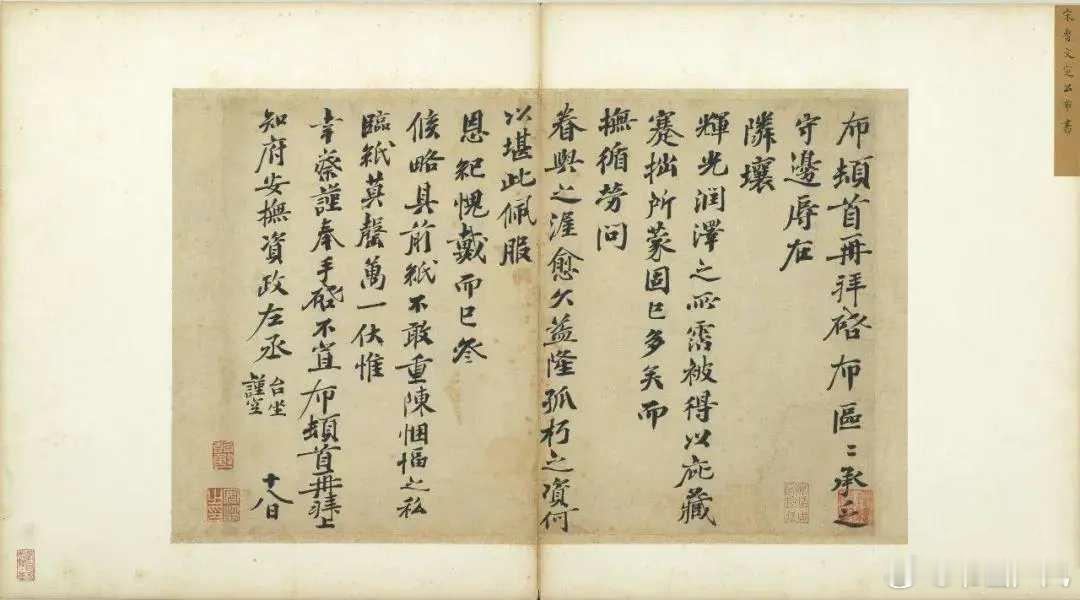 宋曾文定公布書
布頓首再拜啓布區〻承乏
守邊辱在
隣壤
輝光潤澤之所霑被得以庇藏
蹇拙所蒙固已多矣而
撫循勞問
眷與之渥愈久益隆孤朽之資何
以堪此佩服
恩紀愧戴而已參
候略具前紙不敢重陳悃愊之私
臨紙莫罄萬一伏惟
幸察謹奉手啓不宣布頓首再拜上
知府安撫資政左丞
台坐
謹空
十八日